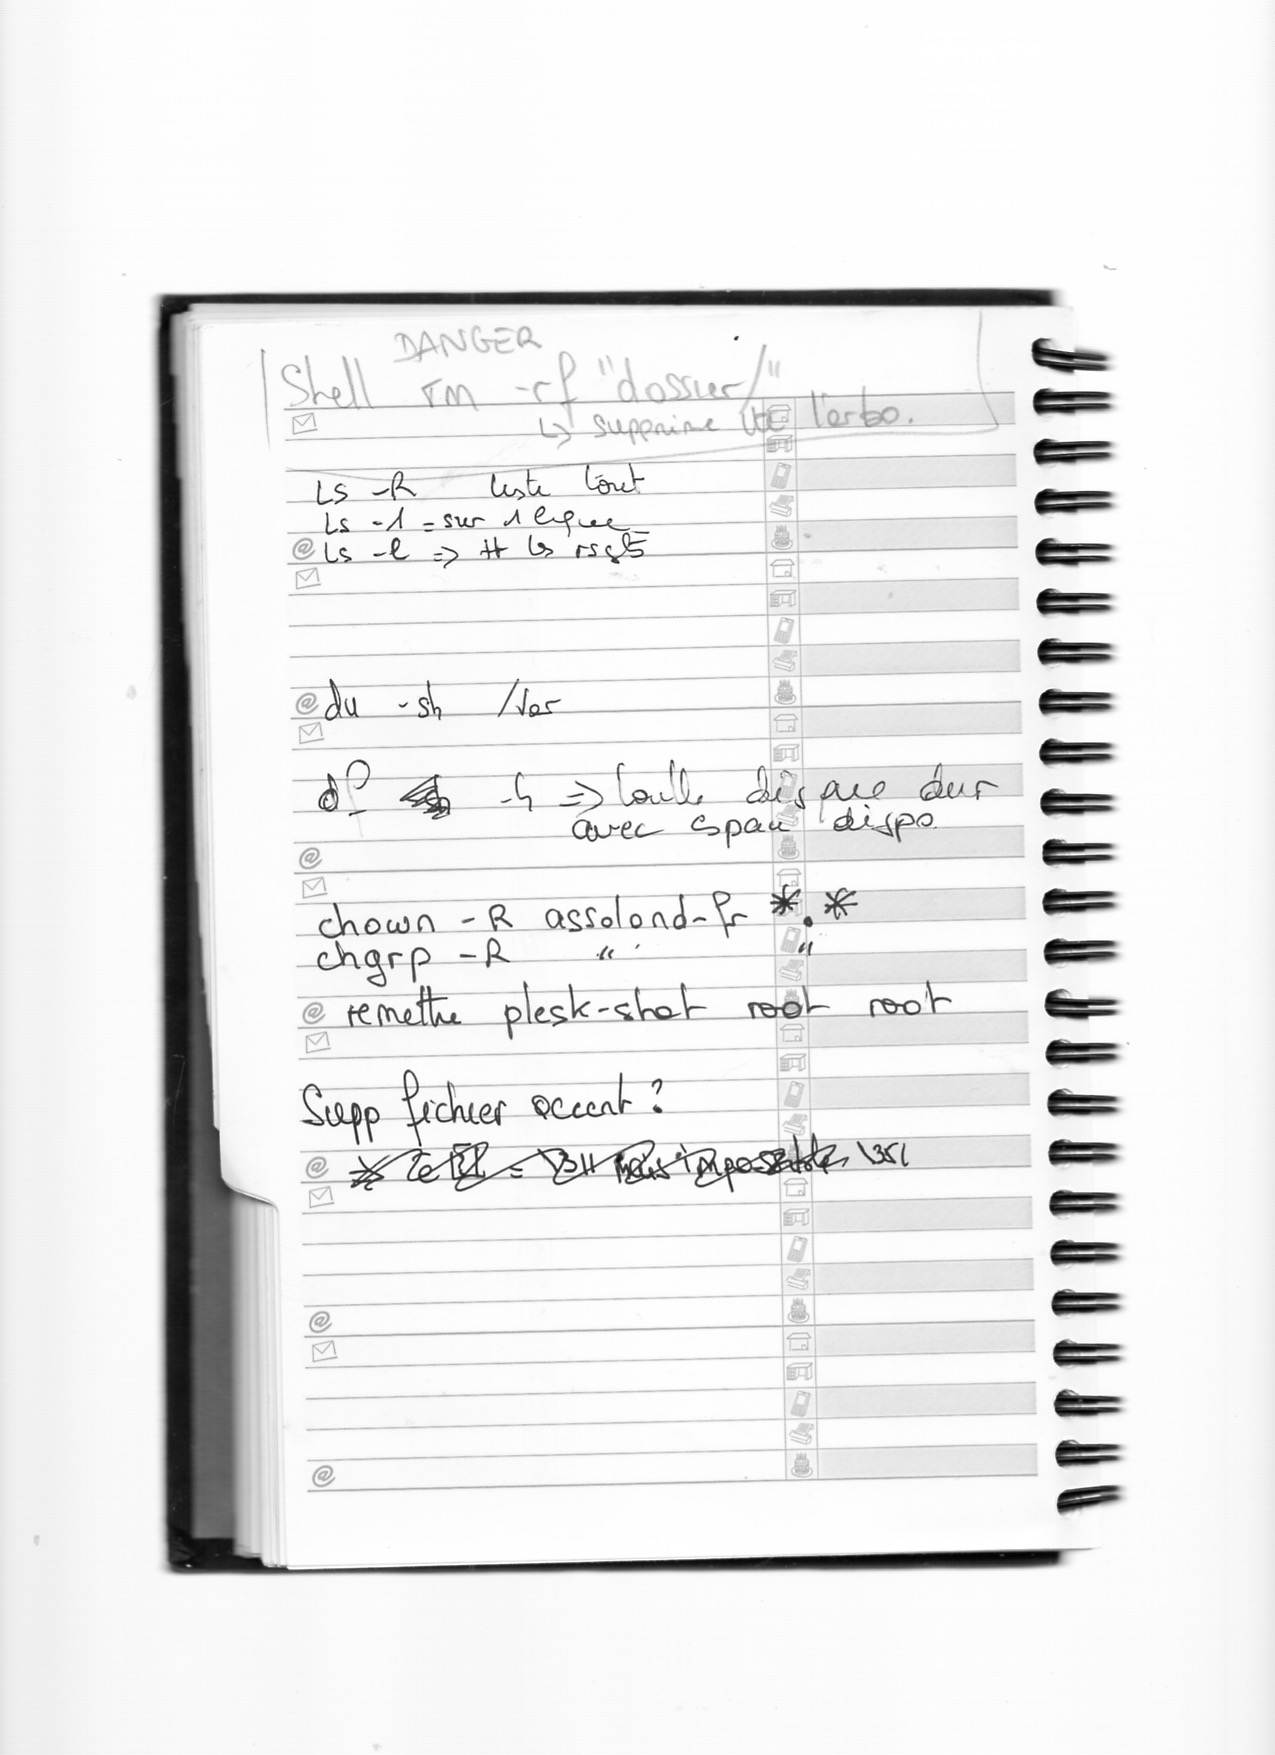 DANGER
Shell rm -rf "dossier/"
↳ supprime tte l'arbo.
Ls -R liste tout
Ls -1 = sur 1 ligne
Ls -l => # ls rsgts
du -sh /var
df -h => taille disque dur
avec espace dispo
chown -R assoland-fr *.*
chgrp -R " "
remettre plesk-stat root root
Supp fichier accent ?